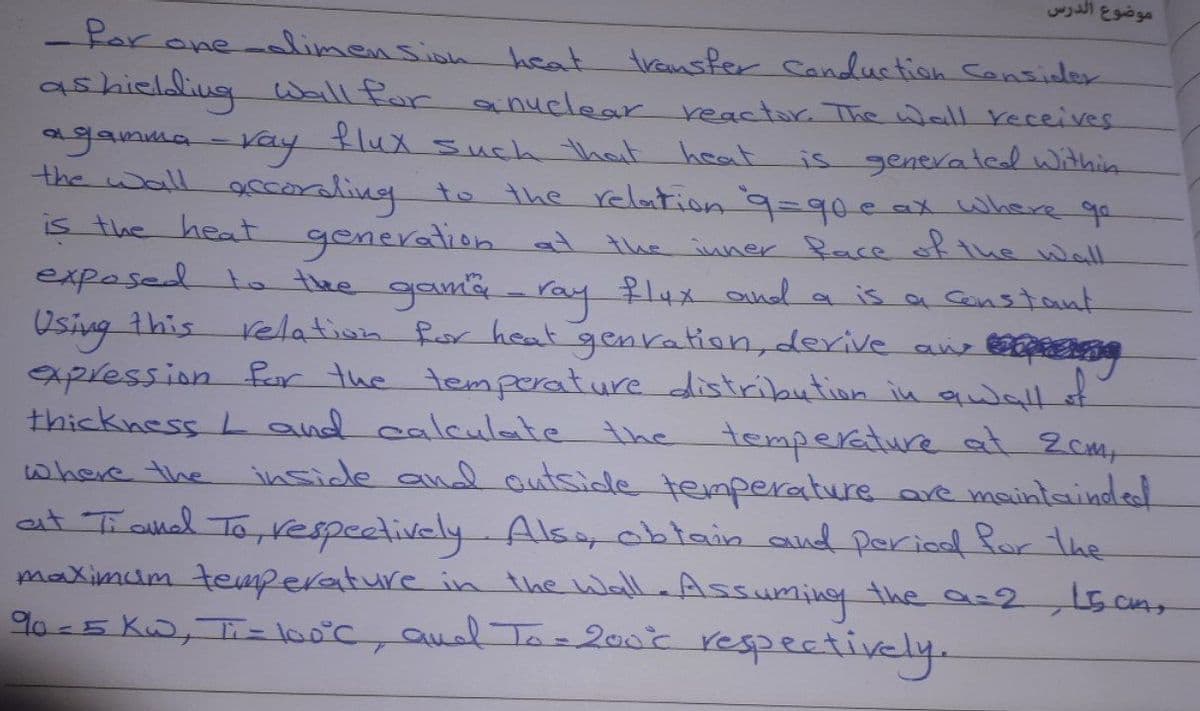 موضوع الدرس
- For one-dimension heat transfer Conduction Consider
a shielding wall for a nuclear reactor. The wall receives
a gamma-ray flux such that heat is generated within
the wall according to the relation q̇=q0 e ax where q0
is the heat generation at the inner face of the wall
exposed to the gama-ray flux and a is a constant
Using this relation for heat genration, derive an
expression for the temperature distribution in a wall of
thickness L and calculate the temperature at 2cm,
where the inside and outside temperature are maintainded
at Ti and To, respectively. Also, obtain and period for the
maximum temperature in the wall. Assuming the a=2, L5 cm,
q0=5 Kw, Ti=100°C, and To=200°C respectively.